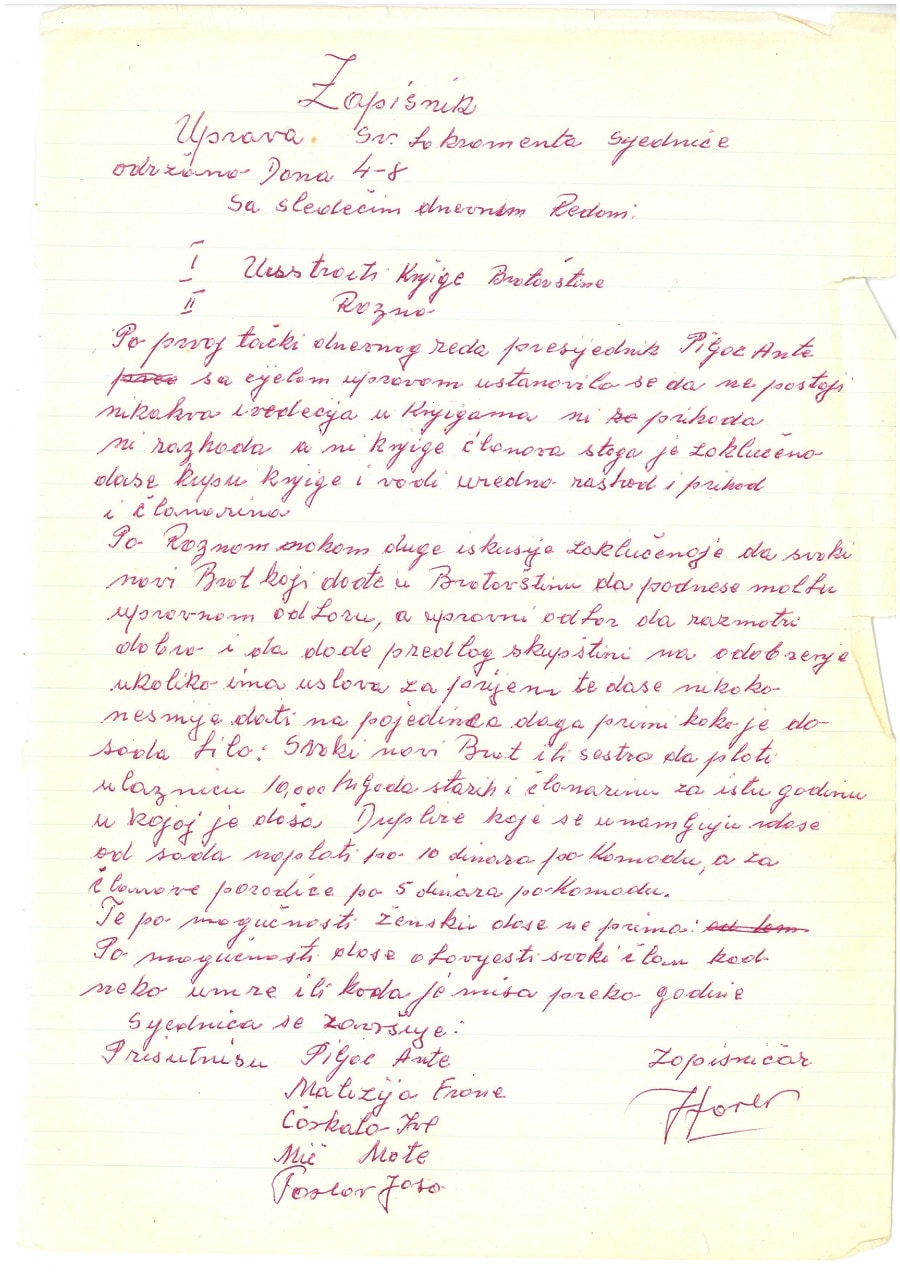 Zapisnik
Uprava Sv. Sakramenta Syednice
održana Dana 4-8
Sa sledećim dnevnim Redom:
I Ustroiti Knjige Bratovštine
II Razno
Po prvoj tački dnevnog reda presijednik Piljac Ante
sa cijelom upravom ustanovila se da ne postoji
nikakva ivedecija u Knjigama ni prihoda
ni razhoda a ni knjige članova stoga je zaklučeno
dase kupu knjige i vodi uredno rashod i prihod
i članarina
Po Raznom nakom duge iskusije zaklučenoje da svaki
novi Brat koji dođe u Bratovštinu da podnese molbu
upravnom odboru, a upravni odbor da razmotri
dobro i da dade predlog skupštini na odobrenje
ukoliko ima uslova za prijem te dase nikako
nesmije dati na pojedinca daga primi kako je do
sada bilo: Svaki novi Brat ili sestra da plati
ulaznicu 10,000 starih i članarinu za istu godinu
u kojoj je doša Duplire koje se unamljuju dase
od sada naplati po 10 dinara po Komadu, a za
članove porodice po 5 dinara po Komadu.
Te po mogućnosti ženski dase ne prima:
Po mogućnosti dase obavjesti svaki član kad
neko umre ili kada je misa preko godine
Syednica se završuje:
Prisutnisu Piljac Ante Zapisničar
Malezija Frane
Ćoskalo Ive
Mić Mate
Paslar Joso